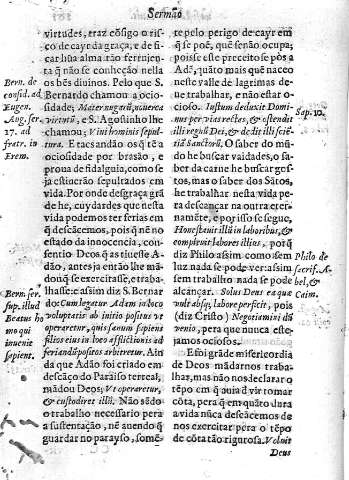 Sermaõ
virtudes, e traz cõsigo o ris-
co de cayr da graça, e de fi-
car hũa alma tão ferrujenta
q̃ não se conheção nella
os bẽs divinos. Pelo que S.
Bernardo chamou a ocio-
sidade; Mater nugarũ, noverca
virtutũ, e S. Agostinho lhe
chamou; Vivi hominis sepul-
tura. E tac sandão os q̃ tẽ a
ociosidade por brasão, e
prova de fidalguia, como se
ja estiverão sepultados em
vida. Por onde desgraça grã
de he, cuydardes que nesta
vida podemos ter ferias em
q̃ descãcemos, pois q̃ nẽ no
estado da innocencia, con-
sentio Deos q̃ as tivesse A-
dão, antes ja entáo lhe mã-
dou q̃ se exercitasse, e traba-
lhasse: e assi diz S. Bernar
do: Cum legatur Adam in loco
voluptatis ab initio positus vt
operaretur, quis sanum sapiens
filios eius in loco afflictionis ad
feriandũ positos arbitretur. Ain
da que Adão foi criado em
descãço do Paraiso terreal,
mãdou Deos; Vt operaretur,
& custodiret illũ. Não sẽdo
o trabalho necessario pera
a sustentação, nẽ avendo q̃
guardar no parayso, somẽ-
Bern. de
consid. ad
Eugen.
Aug. ser.
17. ad
fratr. in
Erem.
Bern. ser.
sup. illud
Beatus ho
mo qui
invenit
sapient.
te pelo perigo de cayr em
q̃ se põe, quẽ se não ocupa;
pois se este preceito se pôs a
Adẽ, quãto mais que naceo
neste valle de lagrimas de-
ve trabalhar, e não estar o-
cioso. Iustum deduxit Domi-
nus per vias rectas, & ostendit
illi regnũ Dei, & dedit illi sciẽ-
tiã Sanctorũ. O saber do mũ-
do he buscar vaidades, o sa-
ber da carne he buscar gos-
tos, mas o saber dos Sãtos,
he trabalhar nesta vida pe-
ra descançar na outra eter-
namẽte, e por isso se segue,
Honestavit illũ in laboribus, &
complevit labores illius, porq̃
diz Philo assim como sem
luz nada se pode ver: assim
sem trabalho nada se póde
alcançar. Solus Deus ea quæ
vult absq; labore perficit, pois
(diz Christo) Negotiamini dũ
venio, pera que nunca este-
jamos ociosos.
E foi grãde misericordia
de Deos mãdarnos traba-
lhar, mas não nos declarar o
tẽpo em q̃ avia d vir tomar
cõta, pera q̃ em quãto dura
a vida nũca descãcemos de
nos exercitar pera o tẽpo
de cõta tão rigurosa. Voluit
Sap. 10.
Philo de
sacrif. A-
bel, &
Caim.
Deus